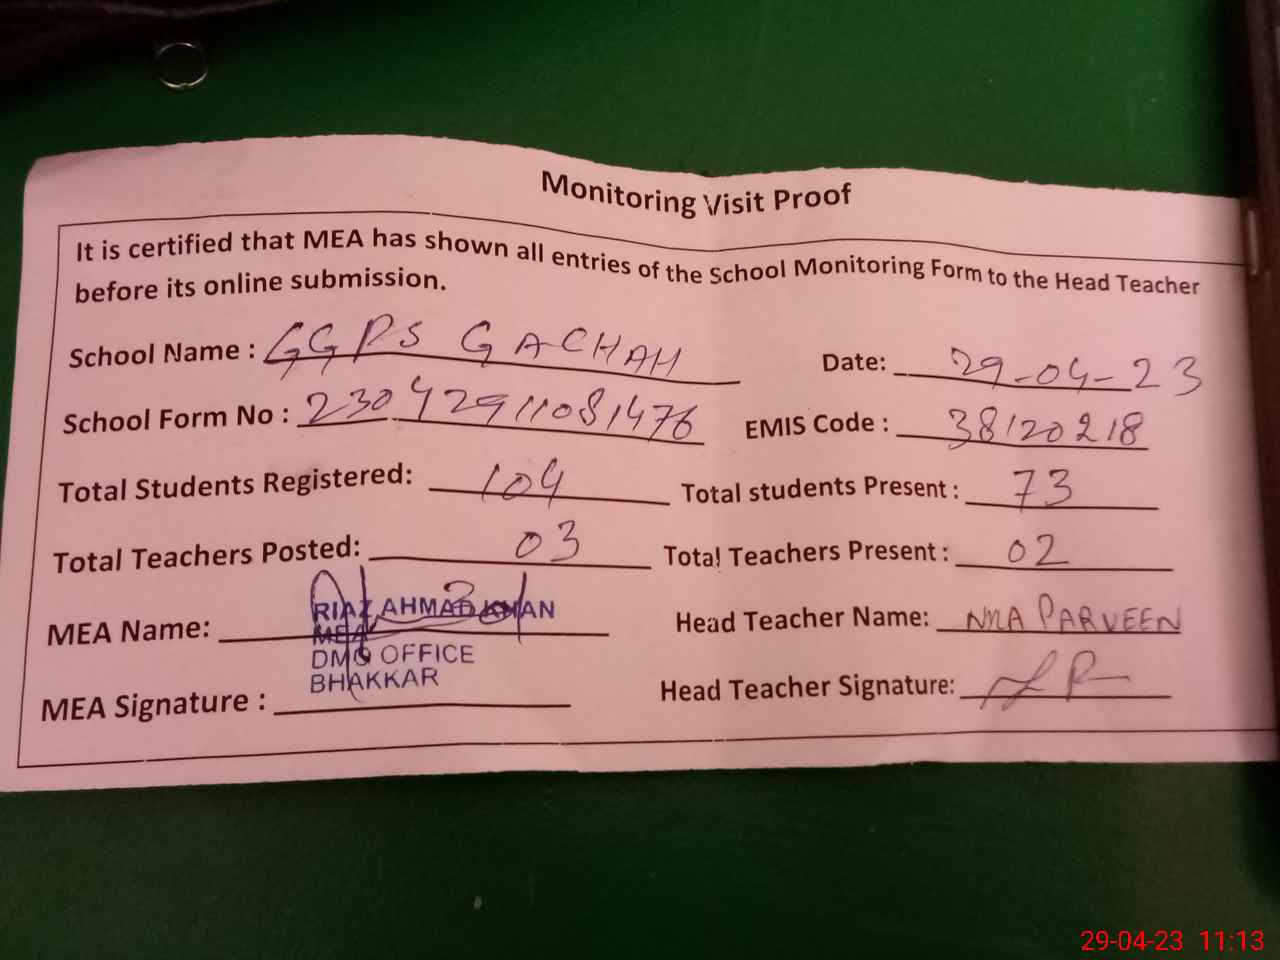 Monitoring Visit Proof
It is certified that MEA has shown all entries of the School Monitoring Form to the Head Teacher
before its online submission.
School Name : GGPS GACHAH Date: 29-04-23
School Form No : 23042911081476 EMIS Code : 38120218
Total Students Registered: 104 Total students Present : 73
Total Teachers Posted: 03 Total Teachers Present : 02
MEA Name: RIAZ AHMAD KHAN Head Teacher Name: PARVEEN
MEA
DMO OFFICE
BHAKKAR
MEA Signature : Head Teacher Signature:
29-04-23 11:13